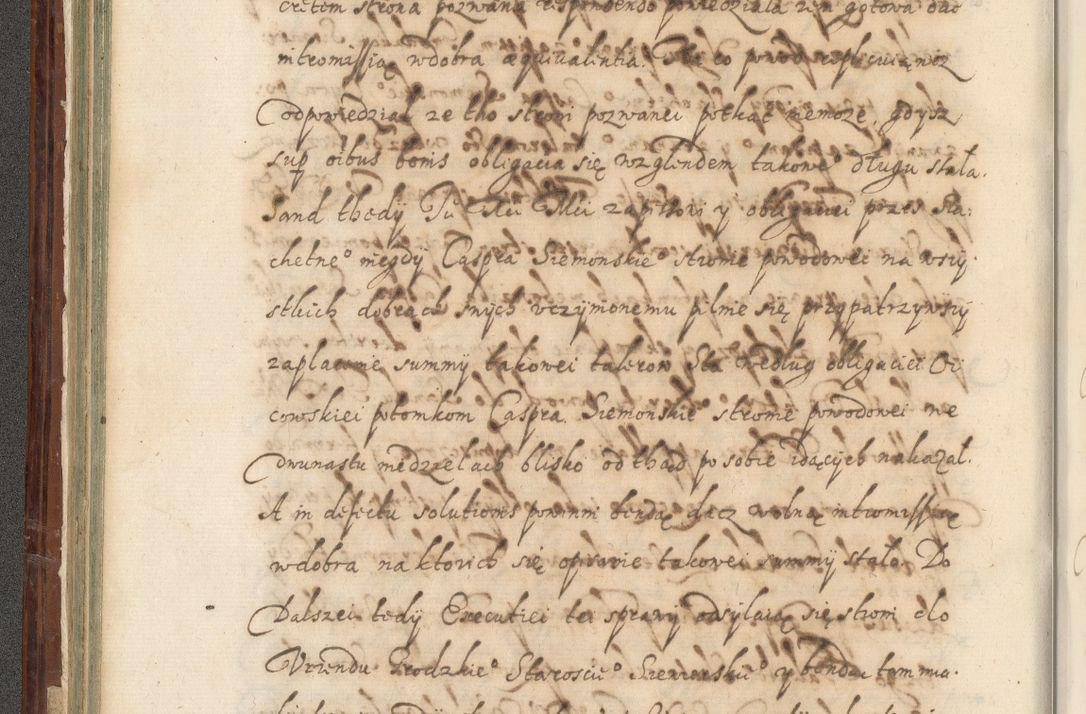 cretem strona pozwana respondendo powiedziała zem gotowa dac
intromissią wdobra æquiualentia. Na co powod replicuiąncz
odpowiedział ze tho stroni pozwanei potkac niemoze, gdysz
sup oibus bonis obligacia się wzglendem takowe° długu stała.
Sand thedÿ Tu
zapisowi y obligaciei przes Sla:
chetne° niegdÿ Caspra Siemonskie° stronie powodowei na wszÿ
stkich dobrach swÿch vczÿnionemu pilnie się przypatrzÿwszÿ
zapłacenie summÿ takowei talerow Sta według obligaciei Oi
cowskiei potomkom Caspra Siemonskie° stronie powodowei we
dwunastu niedzielach blisko od thąd po sobie idącÿch nakazał.
A in defectu solutionis powinni bendą dacz wolną intromissią
wdobra na ktorich się oprawie takowei summÿ stało. Do
Dalszei tedÿ Executiei tei sprawÿ odsÿłaią się stroni do
Vrzendu Grodzkie° Staroscie° Siewierskie° y benda tam mia.